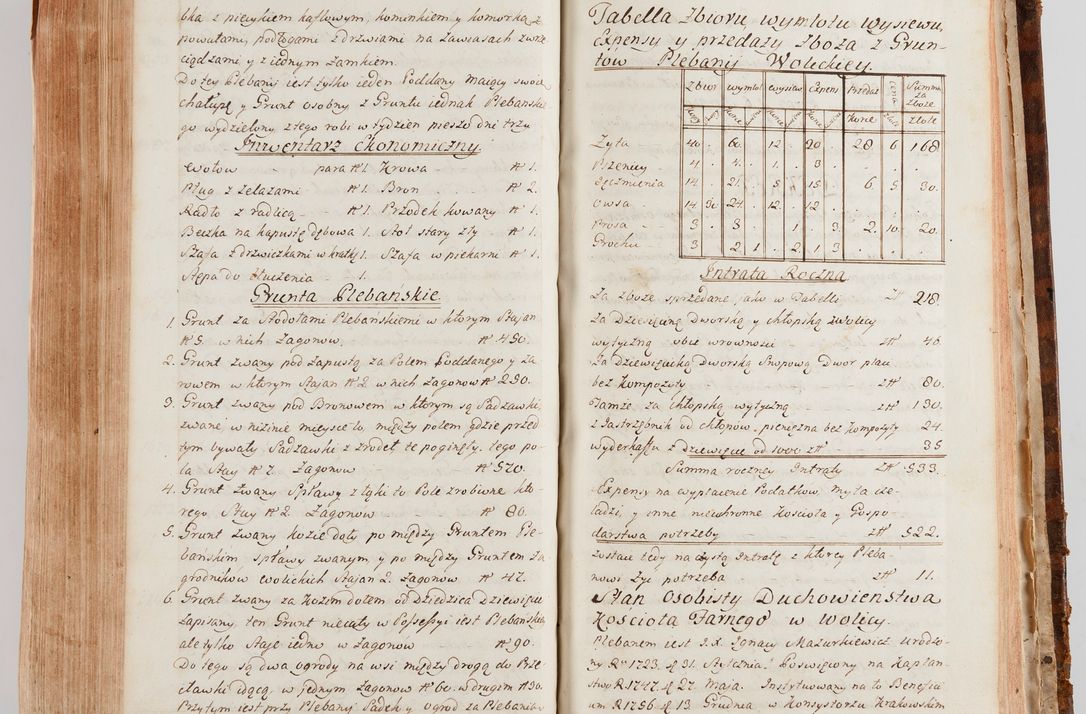 bka z piecykiem kaflowym, kominkiem y komorką z
powałami, podłogami z drzwiami na zawiasach z wrze-
ciądzami y z iednym zamkiem.
Do tey Plebanij iest tylko ieden Poddany maiący swoię
chałupę y Grunt osobny z Gruntu iednak Plebańskie-
go wydzielony, z tego robi w tydzien pieszo dni trzy
Inwentarz Ekonomiczny.
Wołow - para № 1. Krowa № 1.
Pług z zelazami № 1. Bron № 2.
Radło z radlicą - № 1. Przodek kowany № 1.
Beczka na kapustę dębowa 1. Stoł stary zły № 1.
Szafa z drzwiczkami w kratkę 1. Szafa w piekarni № 1.
Stępa do tłuczenia - 1.
Grunta Plebańskie.
1. Grunt za Stodołami Plebańskiemi w ktorym Stajan
№ 5. w nich Zagonow. № 450.
2. Grunt zwany pod Zapustą za Polem Poddanego y za
rowem w ktorym Stajan № 2. w nich zagonow № 250.
3. Grunt zwany pod Bronowem w ktorym są Sadzawki,
zwane, w niźinie mieysce to między polem gdzie przed
tym bywały Sadzawki z zrodeł te poginęły. tego po-
la Stay № 7. Zagonow № 570.
4. Grunt zwany Spławy z łąki to Pole zrobione kto-
rego Stay № 2. Zagonow № 80.
5. Grunt zwany kozie doły po między Gruntem Ple-
bańskim, spławy zwanym y po między Gruntem Za-
grodnikow Wolickich Stajan 2. zagonow № 47.
6. Grunt zwany za Kozim dołem od Dziedzica Dziewięci
Zapisany, ten Grunt niecały w Possessyi iest Plebańskiey
ale tylko Staje iedno w Zagonow № 90.
Do tego są dwa ogrody na wsi między drogą do Brze-
cławki idącą, w jednym Zagonow № 60. w drugim № 30.
Przytym iest przy Plebanij Sadek y ogrod za Plebanią
Tabella Zbioru wymłotu wysiewu,
Expensy y przedazy Zboza z Grun-
tow Plebanij Wolickiey.
Zbior wymłot wysiew Expens Przedaż Cena Summa za zboże
Kopy Snopy Korce Korce Korce Korce Złote Złote
Zyta - 40 . 60. . 12 . 20 . 28 6 168
Pszenicy - 4 . 4. . 1. . 3 .
Jęczmienia 14 . 21. . 5. . 15. . 6. 5. 30.
Owsa - 14 30 24. . 12. . 12. .
Prosa - 3 . 3. . . 1 . 3. 2. 10. 20.
Grochu - 3 . 2 1 . 2 1 3
Intrata Roczna
Za zboze sprzedane, jako w Tabelli Zł 218.
Za Dziesięcinę Dworską y chłopską z Wolicy
wytyczną obie w rowności - zł 46.
Za Dziesięcinką Dworską Snopową Dwor płaci
bez kompozyty - zł 80.
Tamże za chłopską wytyczną - zł 130.
z Jastrzębnik od chłopow, pieniężna bez kompozyty 24.
wyderkafu z Dziewięcic od 1000 zł - 35
Summa roczney Intraty Zł 533.
Expensy na wypłacenie Podatkow, myta cze-
ladzi, y inne nieuchronne Kościoła y Gospo-
darstwa potrzeby - zł 522.
Zostaie tedy na czystą Intratę z ktorey Pleba-
nowi żyć potrzeba - zł 11.
Stan Osobisty Duchowieństwa
Kościoła Farnego w Wolicy.
Plebanem iest J.X. Ignacy Mazurkiewicz Urodzo-
ny R° 1723. d 31. Stycznia. Poswięcony na Kapłań-
stwo R 1747. d 27. Maja. Instytuowany na to Benefici-
um R 1756 d 13. Grudnia w Konsystorzu Krakowskim